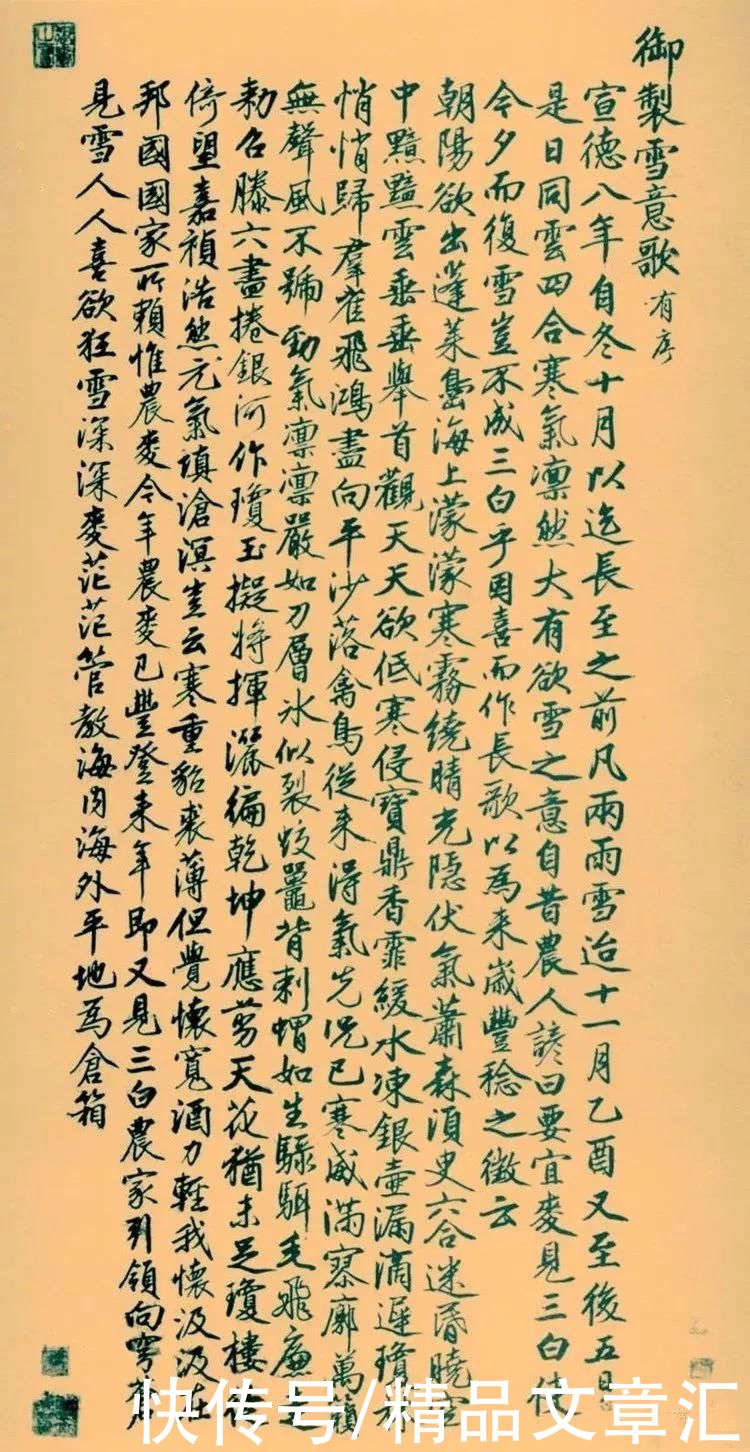 御製雪意歌 有序
宣德八年自冬十月以迄長至之前凡兩雨雪迨十一月乙酉又至後五日
是日同雲四合寒氣凛然大有欲雪之意自昔農人諺曰要宜麥見三白使
今夕而復雪豈不成三白乎因喜而作長歌以為来歲豐稔之徵云
朝陽欲出蓬莱島海上濛濛寒霧繞晴光隱伏氣蕭森湏史六合迷昏曉空
中黯黯雲垂垂舉首觀天天欲低寒侵寶鼎香霏緩水凍銀壷漏滴遲瓊林
悄悄歸羣雀飛鴻盡向平沙落禽鳥從来得氣先况已寒威满寥廓萬籟
無聲風不號勁氣凛凛嚴如刀層冰似裂蛟鼉背刺蝟如生騄駬毛飛廉已
勅召滕六盡捲銀河作瓊玉擬将揮灑徧乾坤應剪天花猶未足瓊樓
倚望嘉禎浩然元氣填滄溟豈云寒重貂裘薄但覺懷寬酒力輕我懷汲汲在
邦國國家所賴惟農麥今年農麥已豐登来年即又見三白農家引領向穹蒼
見雪人人喜欲狂雪深深麥茫茫管教海内海外平地為倉箱
快传号/精品文章汇